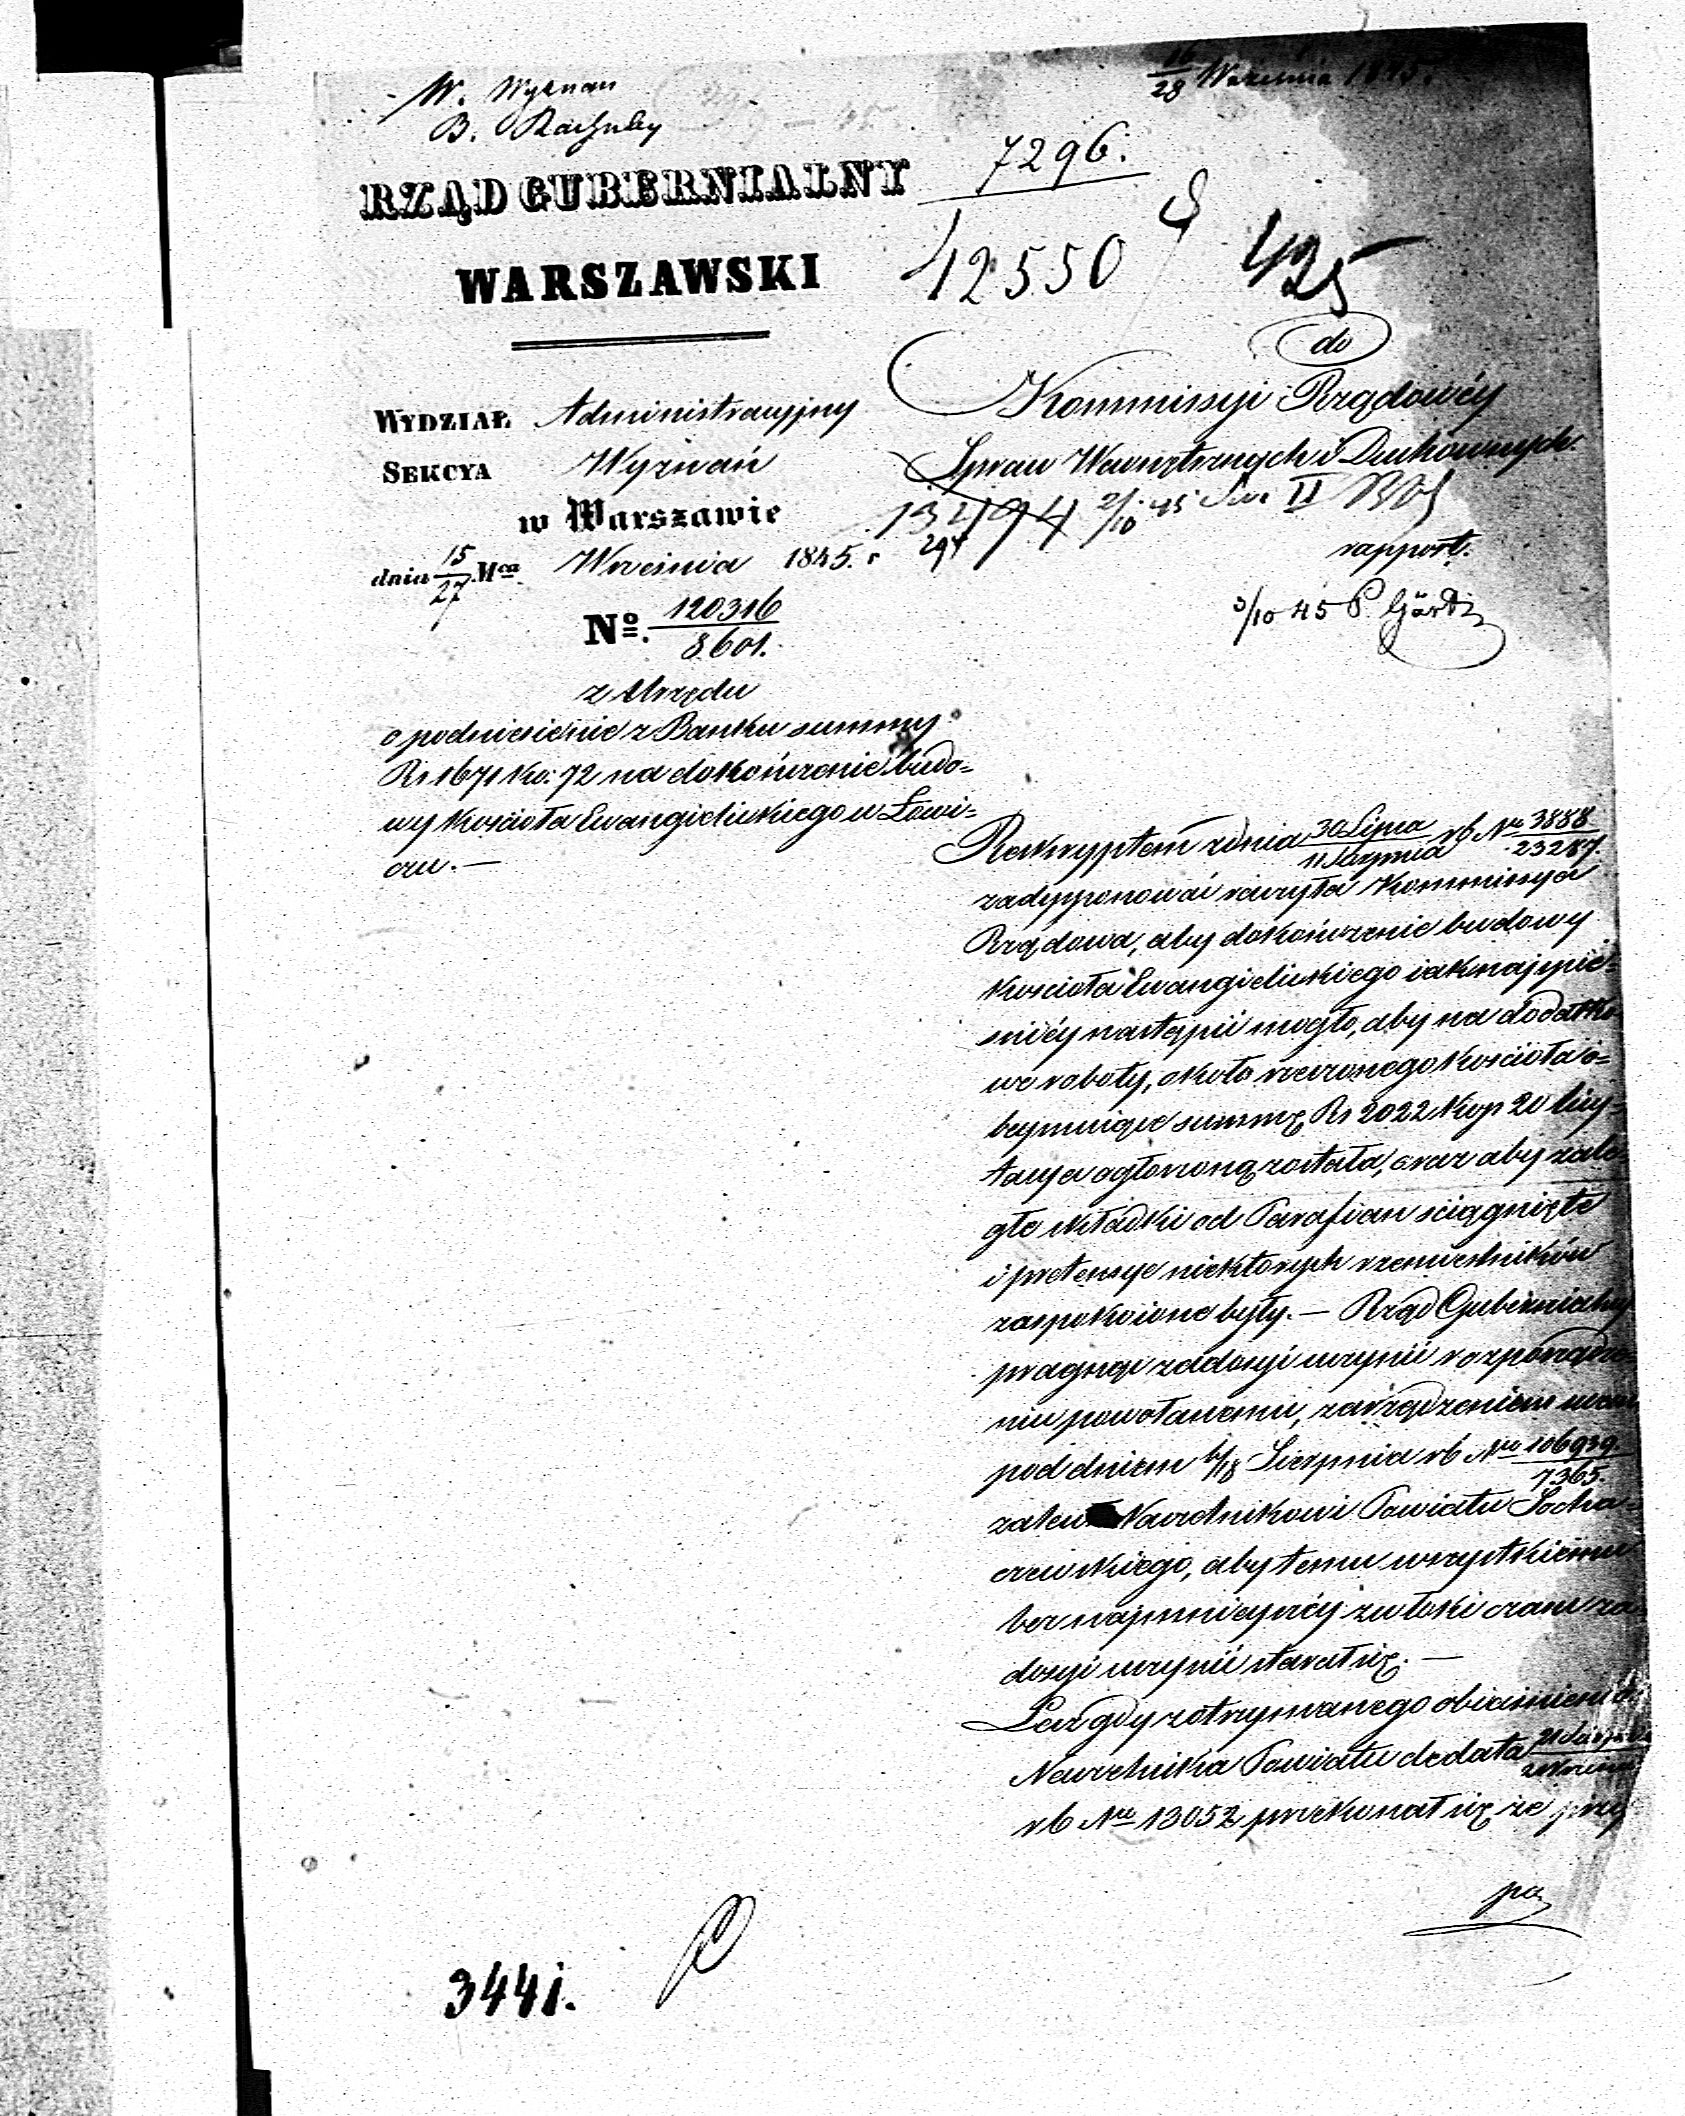 W. Wyznań
B. Rachuby
16/28 Września 1845.
RZĄD GUBERNIALNY
WARSZAWSKI
7296.
42550
425
WYDZIAŁ Administracyjny
SEKCYA Wyznań
w Warszawie
dnia 15/27 Mca Września 1845. r
No. 120316/8601.
z Urzędu
o podniesienie z Banku summy
Rs 1671 ko: 72 na dokończenie budo=
wy Kościoła Ewangielickiego w Łowi=
czu. —
do
Kommissyi Rządowéy
Spraw Wewnętrznych i Duchownych.
2/10 45 II
294
rapport.
3/10 45
Reskryptem z dnia 30 Lipca/11 Sierpnia rb Nro 3888/23287.
zadysponować raczyła Kommissya
Rządowa, aby dokończenie budowy
Kościoła Ewangielickiego iaknayspie=
sznićy nastąpić mogło, aby na dodatko
we roboty, około rzeczonego Kościoła o=
beymuiące summę Rs 2022 kop 20 licy=
tacya ogłoszoną została, oraz aby zale
głe składki od Parafian ściągnięte
i pretensye niektórych rzemieślników
zaspokoione były. — Rząd Gubernialny
pragnąc zadosyć uczynić rozporządze
niu powołanemu, zarządzeniem swem
pod dniem 6/18 Sierpnia rb Nro 106939/7365.
zalecił Naczelnikowi Powiatu Socha=
czewskiego, aby temu wszystkiemu
bez naymnieyszéy zwłoki czasu za
dosyć uczynić starał się. —
Lecz gdy z otrzymanego obiaśnienia
Naczelnika Powiatu de data 21 Sierpnia/2 Września
rb Nro 13052 przekonał się że przy
3441.